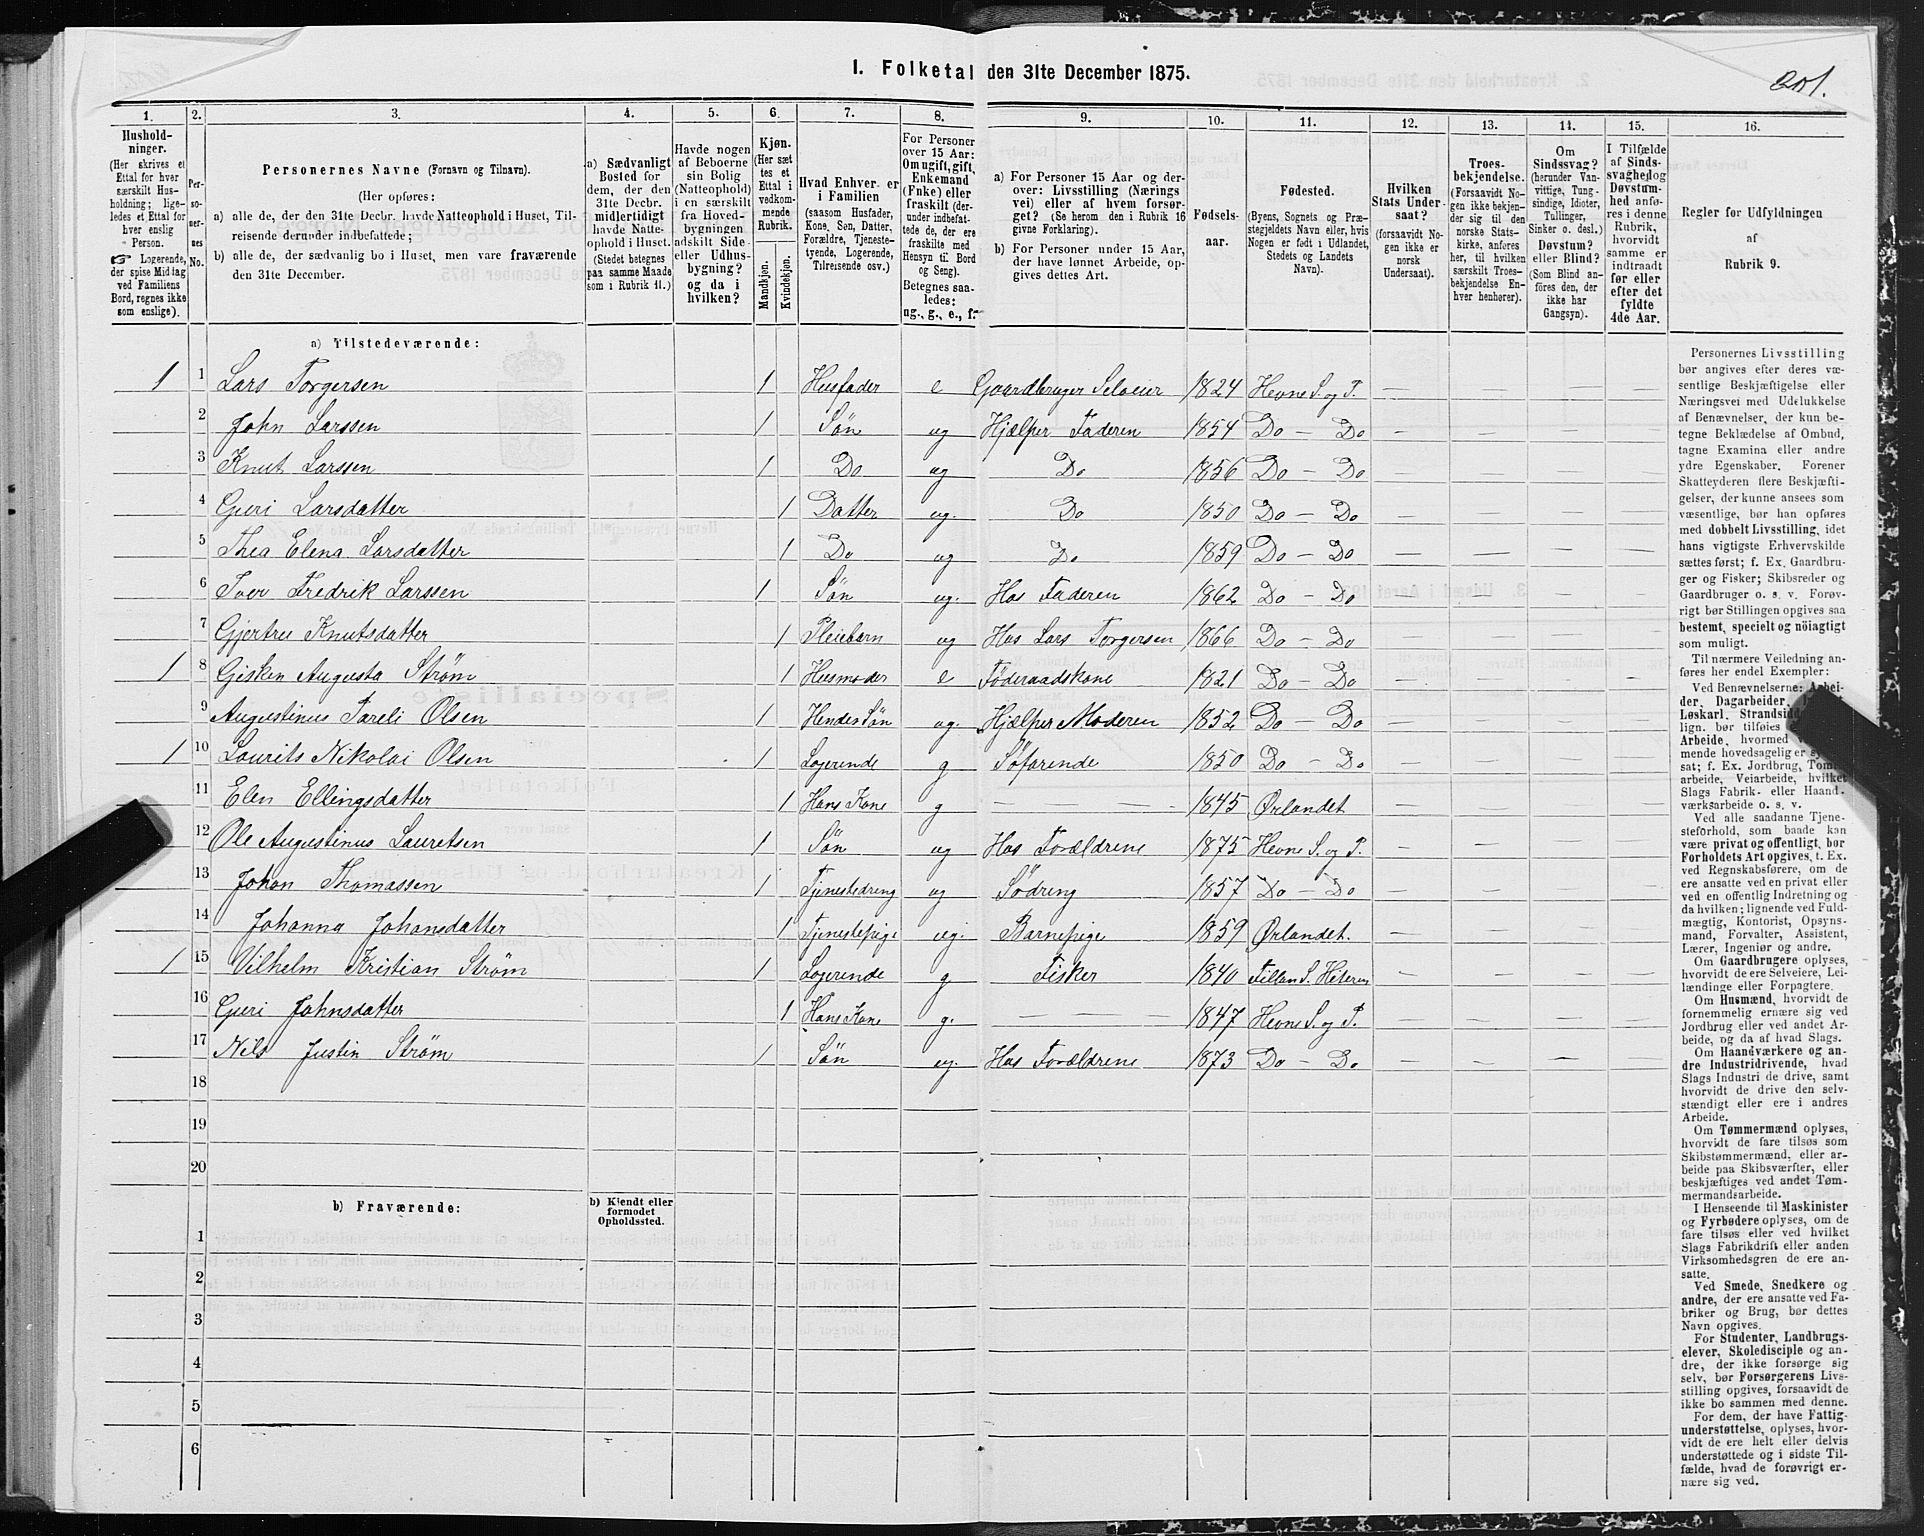 I. Folketal den 31te December 1875.
201.
1. 2. 3. 4. 5. 6. 7. 8. 9. 10. 11. 12. 13. 14. 15. 16.
Hushold-
ninger.
(Her skrives et
Ettal for hver
særskilt Hus-
holdning; lige-
ledes et Ettal for
hver enslig
Person.
☞ Logerende,
der spise Middag
ved Familiens
Bord, regnes ikke
som enslige).
Per-
so-
ner-
nes
No.
Personernes Navne (Fornavn og Tilnavn).
(Her opføres:
a) alle de, der den 31te Decbr. havde Natteophold i Huset, Til-
reisende derunder indbefattede;
b) alle de, der sædvanlig bo i Huset, men vare fraværende
den 31te December.
a) Sædvanligt
Bosted for
dem, der den
31te Decbr.
midlertidigt
havde Natte-
ophold i Huset.
(Stedet betegnes
paa samme Maade
som i Rubrik 11.)
Havde nogen
af Beboerne
sin Bolig
(Natteophold)
i en særskilt
fra Hoved-
bygningen
adskilt Side-
eller Udhus-
bygning?
og da i
hvilken?
Kjøn.
(Her sæt
tes et
Ettal i
vedkom-
mende
Rubrik.
Mandkjøn.
Kvindekjøn.
Hvad Enhver er
i Familien
(saasom Husfader,
Kone, Søn, Datter,
Forældre, Tjeneste-
tyende, Logerende,
Tilreisende osv.)
For Personer
over 15 Aar:
Om ugift, gift,
Enkemand
(Enke) eller
fraskilt (der-
under indbefat-
tede de, der ere
fraskilte med
Hensyn til Bord
og Seng).
Betegnes saa-
ledes:
ug., g., e., f.
a) For Personer 15 Aar og der-
over: Livsstilling (Nærings
vei) eller af hvem forsør-
get? (Se herom den i Rubrik 16
givne Forklaring).
b) For Personer under 15 Aar,
der have lønnet Arbeide, op-
gives dettes Art.
Fødsels-
aar.
Fødested.
(Byens, Sognets og Præ-
stegjeldets Navn eller, hvis
Nogen er født i Udlandet,
Stedets og Landets
Navn).
Hvilken
Stats Under-
saat?
(forsaavidt No-
gen ikke er
norsk
Undersaat).
Troes-
bekjendelse.
(Forsaavidt No-
gen ikke bekjen-
der sig til den
norske Stats-
kirke, anføres
her, til hvilken
særskilt Troes-
bekjendelse En-
hver henhører).
Om
Sindssvag?
(herunder Van-
vittige, Tung-
sindige, Idioter,
Tullinger,
Sinker o. desl.)
Døvstum?
eller Blind?
(Som Blind an-
føres den, der
ikke har
Gangsyn).
I Tilfælde
af Sinds-
svaghed og
Døvstum-
hed anfø-
res i denne
Rubrik,
hvorvidt
samme er
indtraadt
før eller
efter det
fyldte
4de Aar.
Regler for Udfyldningen
af
Rubrik 9.
a) Tilstedeværende:
1 1 Lars Torgersen 1 Husfader e Gaardbruger Selveier 1824 Hevne S. og P. — — — —
2 John Larssen 1 Søn ug Hjælper Faderen 1854 Do — Do — — — —
3 Knut Larssen 1 Do ug Do 1856 Do — Do — — — —
4 Guri Larsdatter 1 Datter ug. Do 1850 Do — Do — — — —
5 Thea Elena Larsdatter 1 Do ug Do 1859 Do — Do — — — —
6 Iver Fredrik Larssen 1 Søn ug. Hos Faderen 1862 Do — Do — — — —
7 Gjertru Knutsdatter 1 Pleiebarn ug Hos Lars Torgersen 1866 Do — Do — — — —
1 8 Gisken Augusta Strøm 1 Husmoder e Föderaadskone 1821 Do — Do — — — —
9 Augustinus Tareli Olsen 1 Hendes Søn ug. Hjælper Moderen 1852 Do — Do — — — —
1 10 Laurits Nikolai Olsen 1 Logerende g Söfarende 1850 Do — Do — — — —
11 Elen Ellingsdatter 1 Hans Kone g — — 1845 Ørlandet — — — —
12 Ole Augustinus Lauretsen 1 Søn ug Hos Forældrene 1875 Hevne S. og P. — — — —
13 Johan Thomassen 1 Tjenestedreng ug Södreng 1857 Do — Do — — — —
14 Johanna Johansdatter 1 Tjenestepige ug. Barnepige 1859 Ørlandet. — — — —
1 15 Vilhelm Kristian Strøm 1 Logerende g Fisker 1840 Fillan S. Hiteren — — — —
16 Guri Johnsdatter 1 Hans Kone g. — — 1847 Hevne S. og P. — — — —
17 Nils Justin Strøm 1 Søn ug. Hos Forældrene 1873 Do — Do — — — —
18
19
20
b) Fraværende:
b) Kjendt eller
formodet
Opholdssted.
1
2
3
4
5
6
Personernes Livsstilling
bør angives efter deres væ-
sentlige Beskjæftigelse eller
Næringsvei med Udelukkelse
af Benævnelser, der kun be-
tegne Beklædelse af Ombud,
tagne Examina eller andre
ydre Egenskaber. Forener
Skatteyderen flere Beskjæfti-
gelser, der kunne ansees som
væsentlige, bør han opføres
med dobbelt Livsstilling, idet
hans vigtigste Erhvervskilde
sættes først; f. Ex. Gaardbru-
ger og Fisker; Skibsreder og
Gaardbruger o. s. v. Forøv-
rigt bør Stillingen opgives saa
bestemt, specielt og nöiagtigt
som muligt.
Til nærmere Veiledning an-
føres her endel Exempler:
Ved Benævnelserne: Arbei-
der, Dagarbeider,
Løskarl, Strandsid
lign. bør tilføies
Arbeide, hvormed
mende hovedsagelig er
sat; f. Ex. Jordbrug,
arbeide, Veiarbeide, hvilket
Slags Fabrik- eller Haand-
værksarbeide o. s. v.
Ved alle saadanne Tjene-
steforhold, som baade kan
være privat og offentligt, bør
Forholdets Art opgives, t. Ex.
ved Regnskabsførere, om de
ere ansatte ved en privat eller
ved en offentlig Indretning og
da hvilken; lignende ved Fuld-
mægtig, Kontorist, Opsyns-
mand, Forvalter, Assistent,
Lærer, Ingeniør og andre.
Om Gaardbrugere oplyses,
hvorvidt de ere Selveiere, Lei-
lændinge eller Forpagtere.
Om Husmænd, hvorvidt de
fornemmelig ernære sig ved
Jordbrug eller ved andet Ar-
beide, og da af hvad Slags.
Om Haandværkere og an-
dre Industridrivende, hvad
Slags Industri de drive, samt
hvorvidt de drive den selv-
stændigt eller ere i andres
Arbeide.
Om Tømmermænd oplyses,
hvorvidt de fare tilsøs som
Skibstømmermænd, eller ar-
beide paa Skibsværfter, eller
beskjæftiges ved andet Tøm-
mermandsarbeide.
I Henseende til Maskinister
og Fyrbødere oplyses, om de
fare tilsøs eller ved hvilket
Slags Fabrikdrift eller anden
Virksomhedsgren de ere an-
satte.
Ved Smede, Snedkere og
andre, der ere ansatte ved Fa-
briker og Brug, bør dettes
Navn opgives.
For Studenter, Landbrugs-
elever, Skoledisciple og an-
dre, der ikke forsørge sig
selv, bør Forsørgerens Livs-
stilling opgives, forsaavidt de
ikke bo sammen med denne.
For dem, der have Fattig-
understøttelse, oplyses, hvor-
vidt de ere helt eller delvis
understøttede og i sidste Til-
fælde, hvad de forøvrigt er-
nære sig ved.